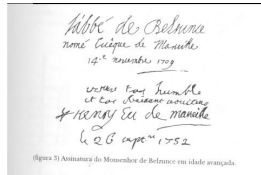 l'abbé de Belzunce
nomé Evêque de Marseille
14.e novembre 1709
humble
et
+ henry Ev de marseille
le 26 sept 1752
(figura 5) Assinatura do Monsenhor de Belzunce em idade avançada.